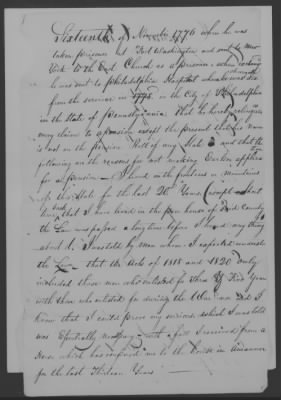 Sixteenth of November 1776 when he was
taken prisoner at Fort Washington and sent to New
York to the Church as a prisoner, when exchang
he was sent to Philadelphia Hospital where he was dis
from the service in 1778 in the City of Philadelphia
in the State of Pennsylvania. That he hereby relinquishes
every claim to a pension except the present that his name
is not on the Pension Roll of any State & and that the
following are the reasons for not making Earlier applica
for a pension — I lived in the frontiers or Mountains
of this State for the last 20 Years (except
time) that I have lived in the poor house of said County
the Law was passed a long time before I heard any thing
about it. I was told by men whom I expected understood
the Law — that the Acts of 1818 and 1820 Only
included those men who enlisted for three Years
with those who enlisted for during the War nor did I
Know that I could prove my services which I was told
was Essentially necessary — with a I received from a
Horse which has confined me to the house in
for the last Thirteen Years —